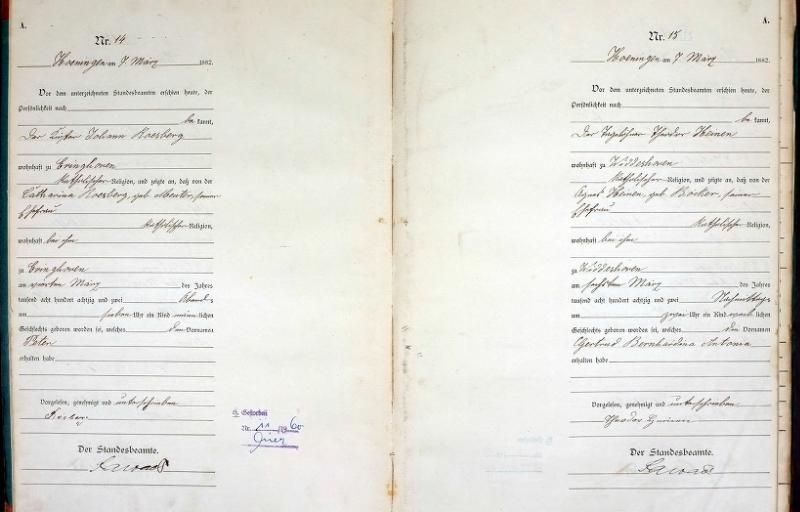 A.
Nr. 14
Hoeningen am 7 März 1882.
Vor dem unterzeichneten Standesbeamten erschien heute, der
Persönlichkeit nach
be kannt,
Der Küster Johann Roesberg
wohnhaft zu Evinghoven
katholischer Religion, und zeigte an, daß von der
Catharina Roesberg, geb. Menter, seiner
Ehefrau
katholischer Religion,
wohnhaft bei ihm
zu Evinghoven
am vierten März des Jahres
tausend acht hundert achtzig und zwei Abends
um sieben Uhr ein Kind männlichen
Geschlechts geboren worden sei, welches den Vornamen
Peter
erhalten habe
Vorgelesen, genehmigt und unterschrieben
Der Standesbeamte.
Gestorben
Nr. 11 60
A.
Nr. 15
Hoeningen am 7 März 1882.
Vor dem unterzeichneten Standesbeamten erschien heute, der
Persönlichkeit nach
be kannt,
Der Tagelöhner Theodor Heinen
wohnhaft zu Widdeshoven
katholischer Religion, und zeigte an, daß von der
Agnes Heinen, geb. Böcker, seiner
Ehefrau
katholischer Religion,
wohnhaft bei ihm
zu Widdeshoven
am sechsten März des Jahres
tausend acht hundert achtzig und zwei Nachmittags
um zwei Uhr ein Kind weiblichen
Geschlechts geboren worden sei, welches den Vornamen
Gertrud Bernhardina Antonia
erhalten habe
Vorgelesen, genehmigt und unterschrieben
Theodor Heinen
Der Standesbeamte.